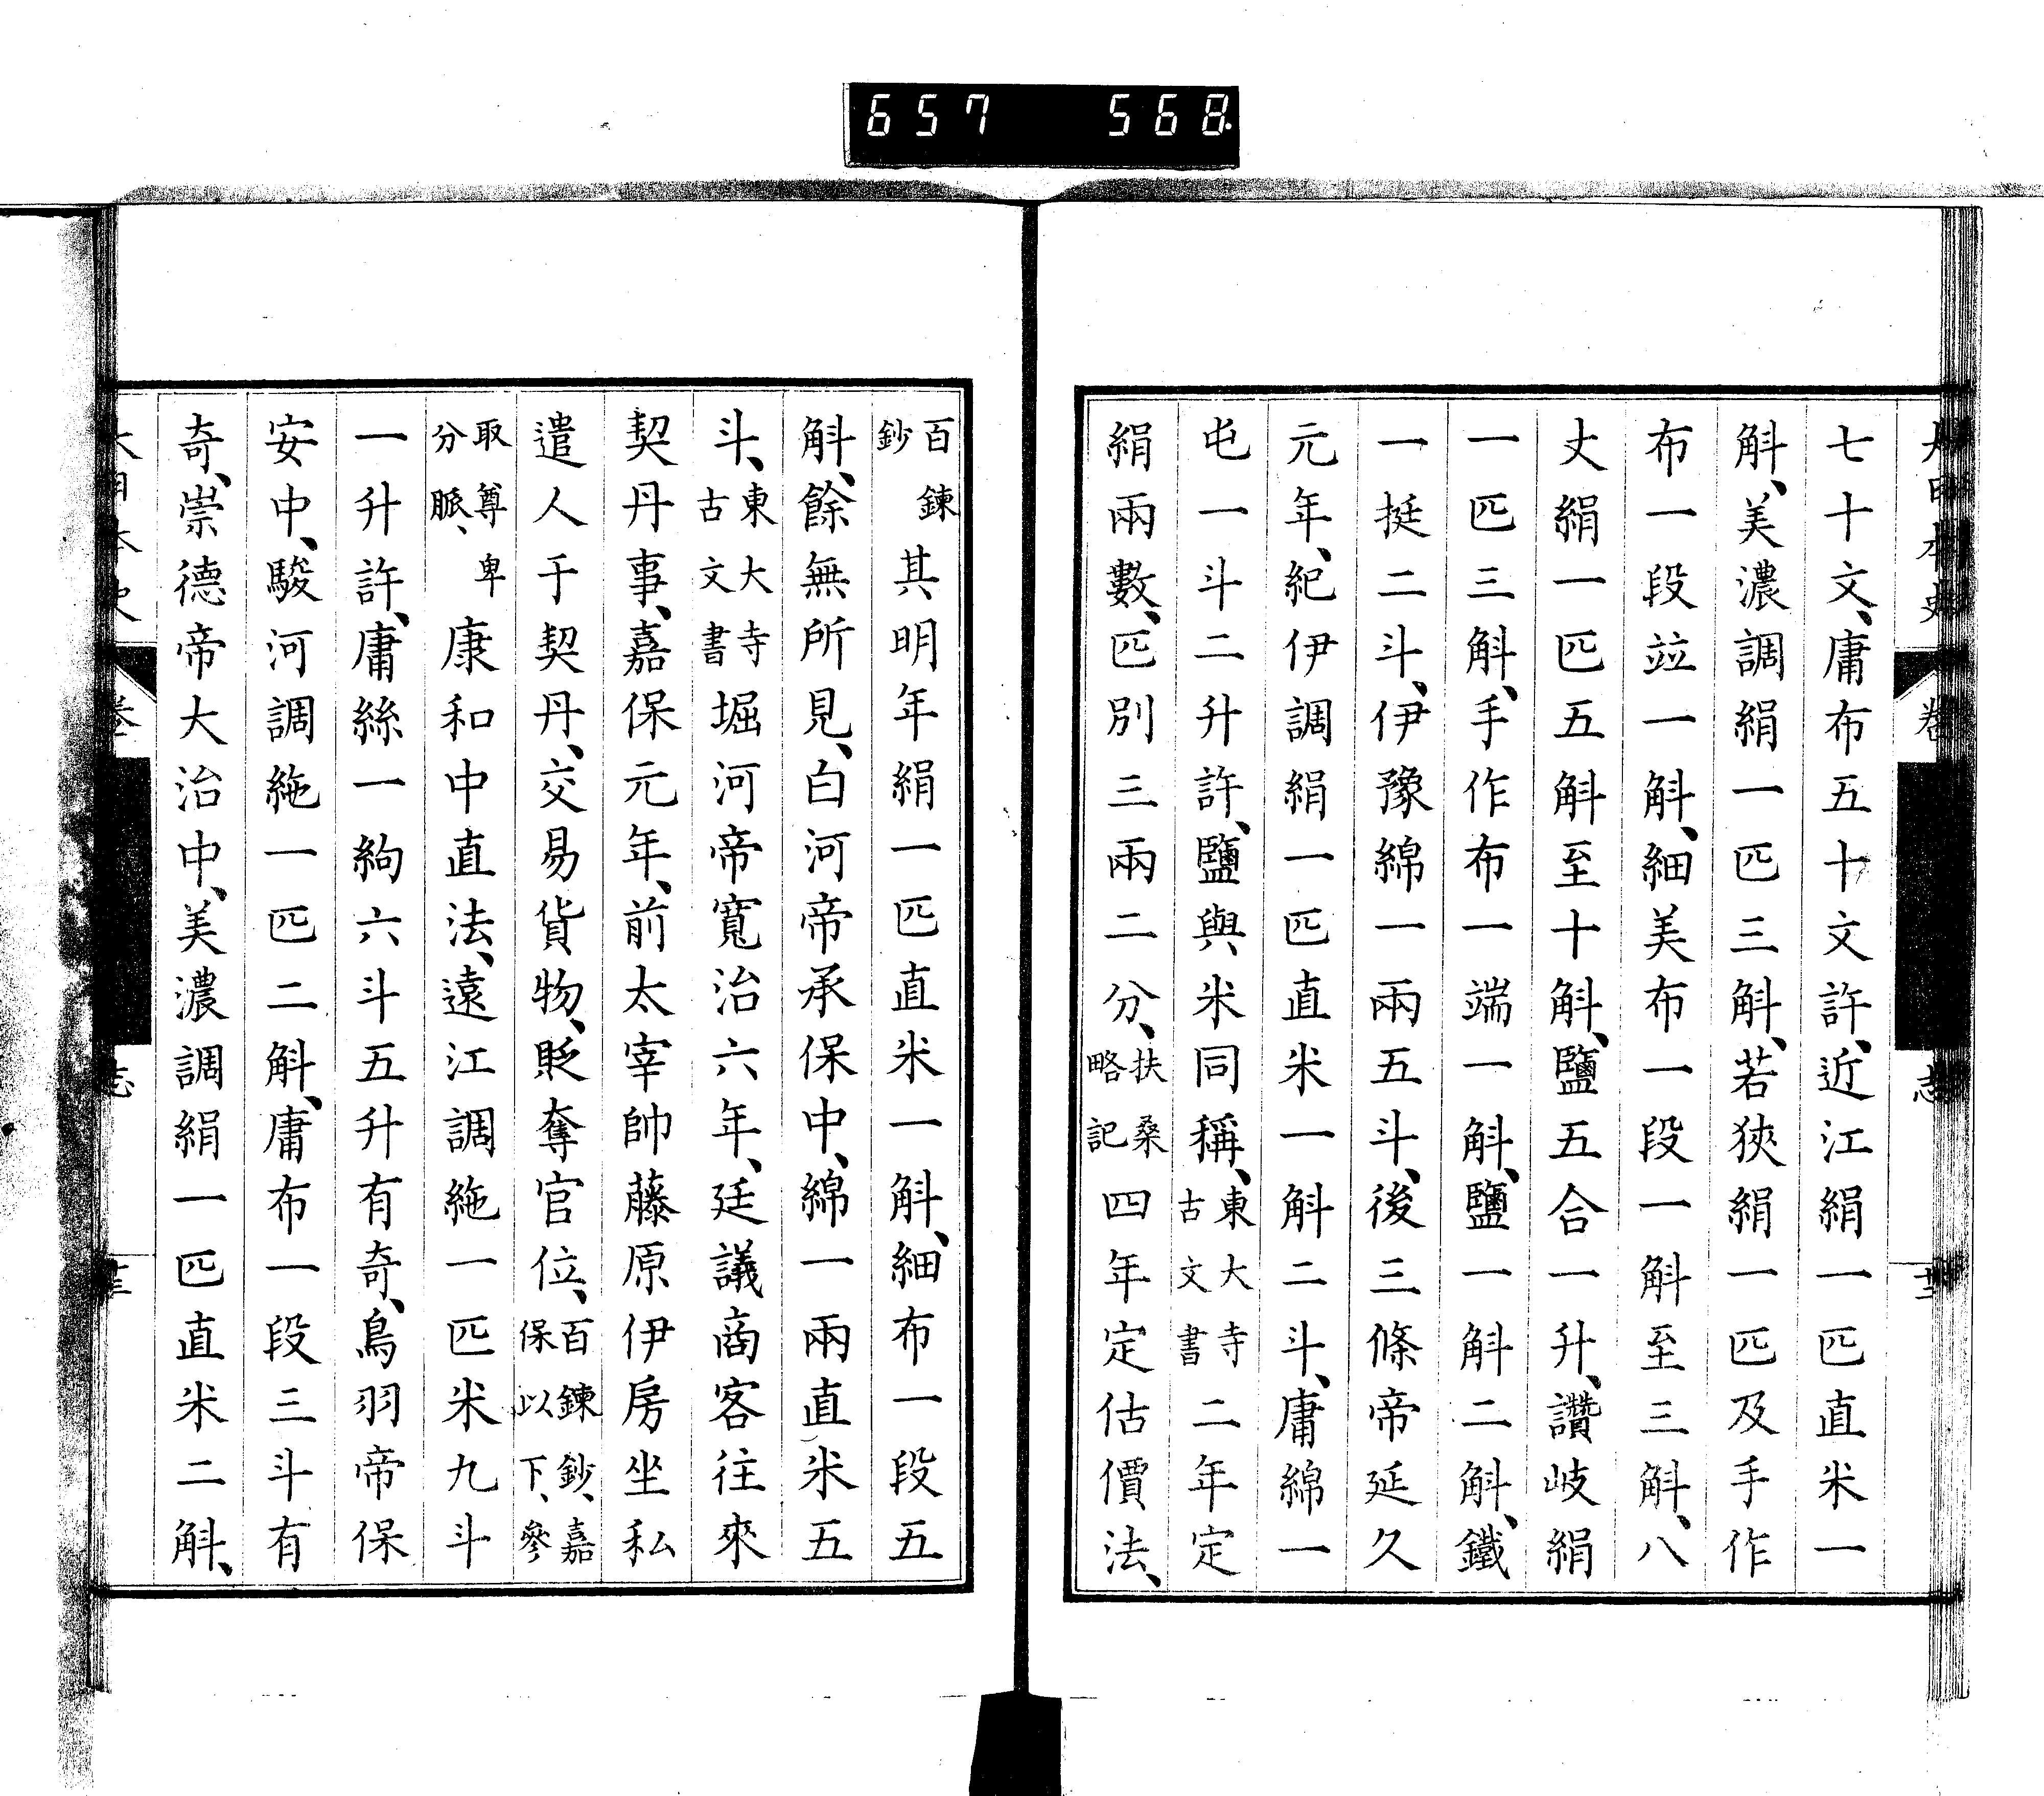 657 568
七十文、庸布五十文許、近江絹一匹直米一
斛、美濃調絹一匹三斛、若狹絹一匹及手作
布一段竝一斛、細美布一段一斛至三斛、八
丈絹一匹五斛至十斛、鹽五合一升、讚岐絹
一匹三斛、手作布一端一斛、鹽一斛二斛、鐵
一挺二斗、伊豫綿一兩五斗、後三條帝延久
元年、紀伊調絹一匹直米一斛二斗、庸綿一
屯一斗二升許、鹽與米同稱、東大寺古文書二年定
絹兩數、匹別三兩二分、扶桑略記四年定估價法、
百鍊鈔其明年絹一匹直米一斛、細布一段五
斛、餘無所見、白河帝承保中、綿一兩直米五
斗、東大寺古文書堀河帝寬治六年、廷議商客往來
契丹事、嘉保元年、前太宰帥藤原伊房坐私
遣人于契丹、交易貨物、貶奪官位、百鍊鈔、嘉保以下、參
取尊卑分脈、康和中直法、遠江調絁一匹米九斗
一升許、庸絲一絇六斗五升有奇、鳥羽帝保
安中、駿河調絁一匹二斛、庸布一段三斗有
奇、崇德帝大治中、美濃調絹一匹直米二斛、